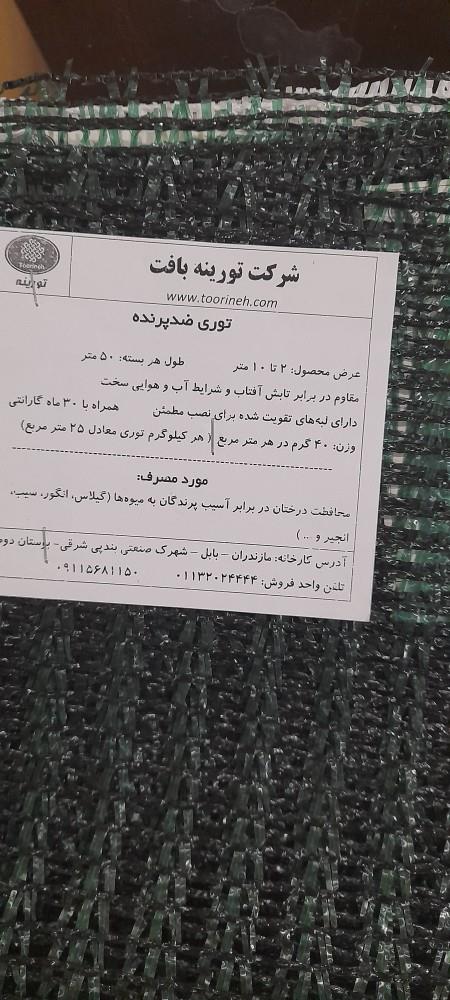 Toorineh
تورینه
شرکت تورینه بافت
www.toorineh.com
توری ضدپرنده
عرض محصول: ۲ تا ۱۰ متر طول هر بسته: ۵۰ متر
مقاوم در برابر تابش آفتاب و شرایط آب و هوایی سخت
دارای لبه‌های تقویت شده برای نصب مطمئن همراه با ۳۰ ماه گارانتی
وزن: ۴۰ گرم در هر متر مربع ( هر کیلوگرم توری معادل ۲۵ متر مربع)
مورد مصرف:
محافظت درختان در برابر آسیب پرندگان به میوه‌ها (گیلاس، انگور، سیب،
انجیر و ... )
آدرس کارخانه: مازندران – بابل – شهرک صنعتی بندپی شرقی- بوستان دوم
تلفن واحد فروش: ۰۱۱۳۲۰۲۴۴۴۴ ۰۹۱۱۵۶۸۱۱۵۰